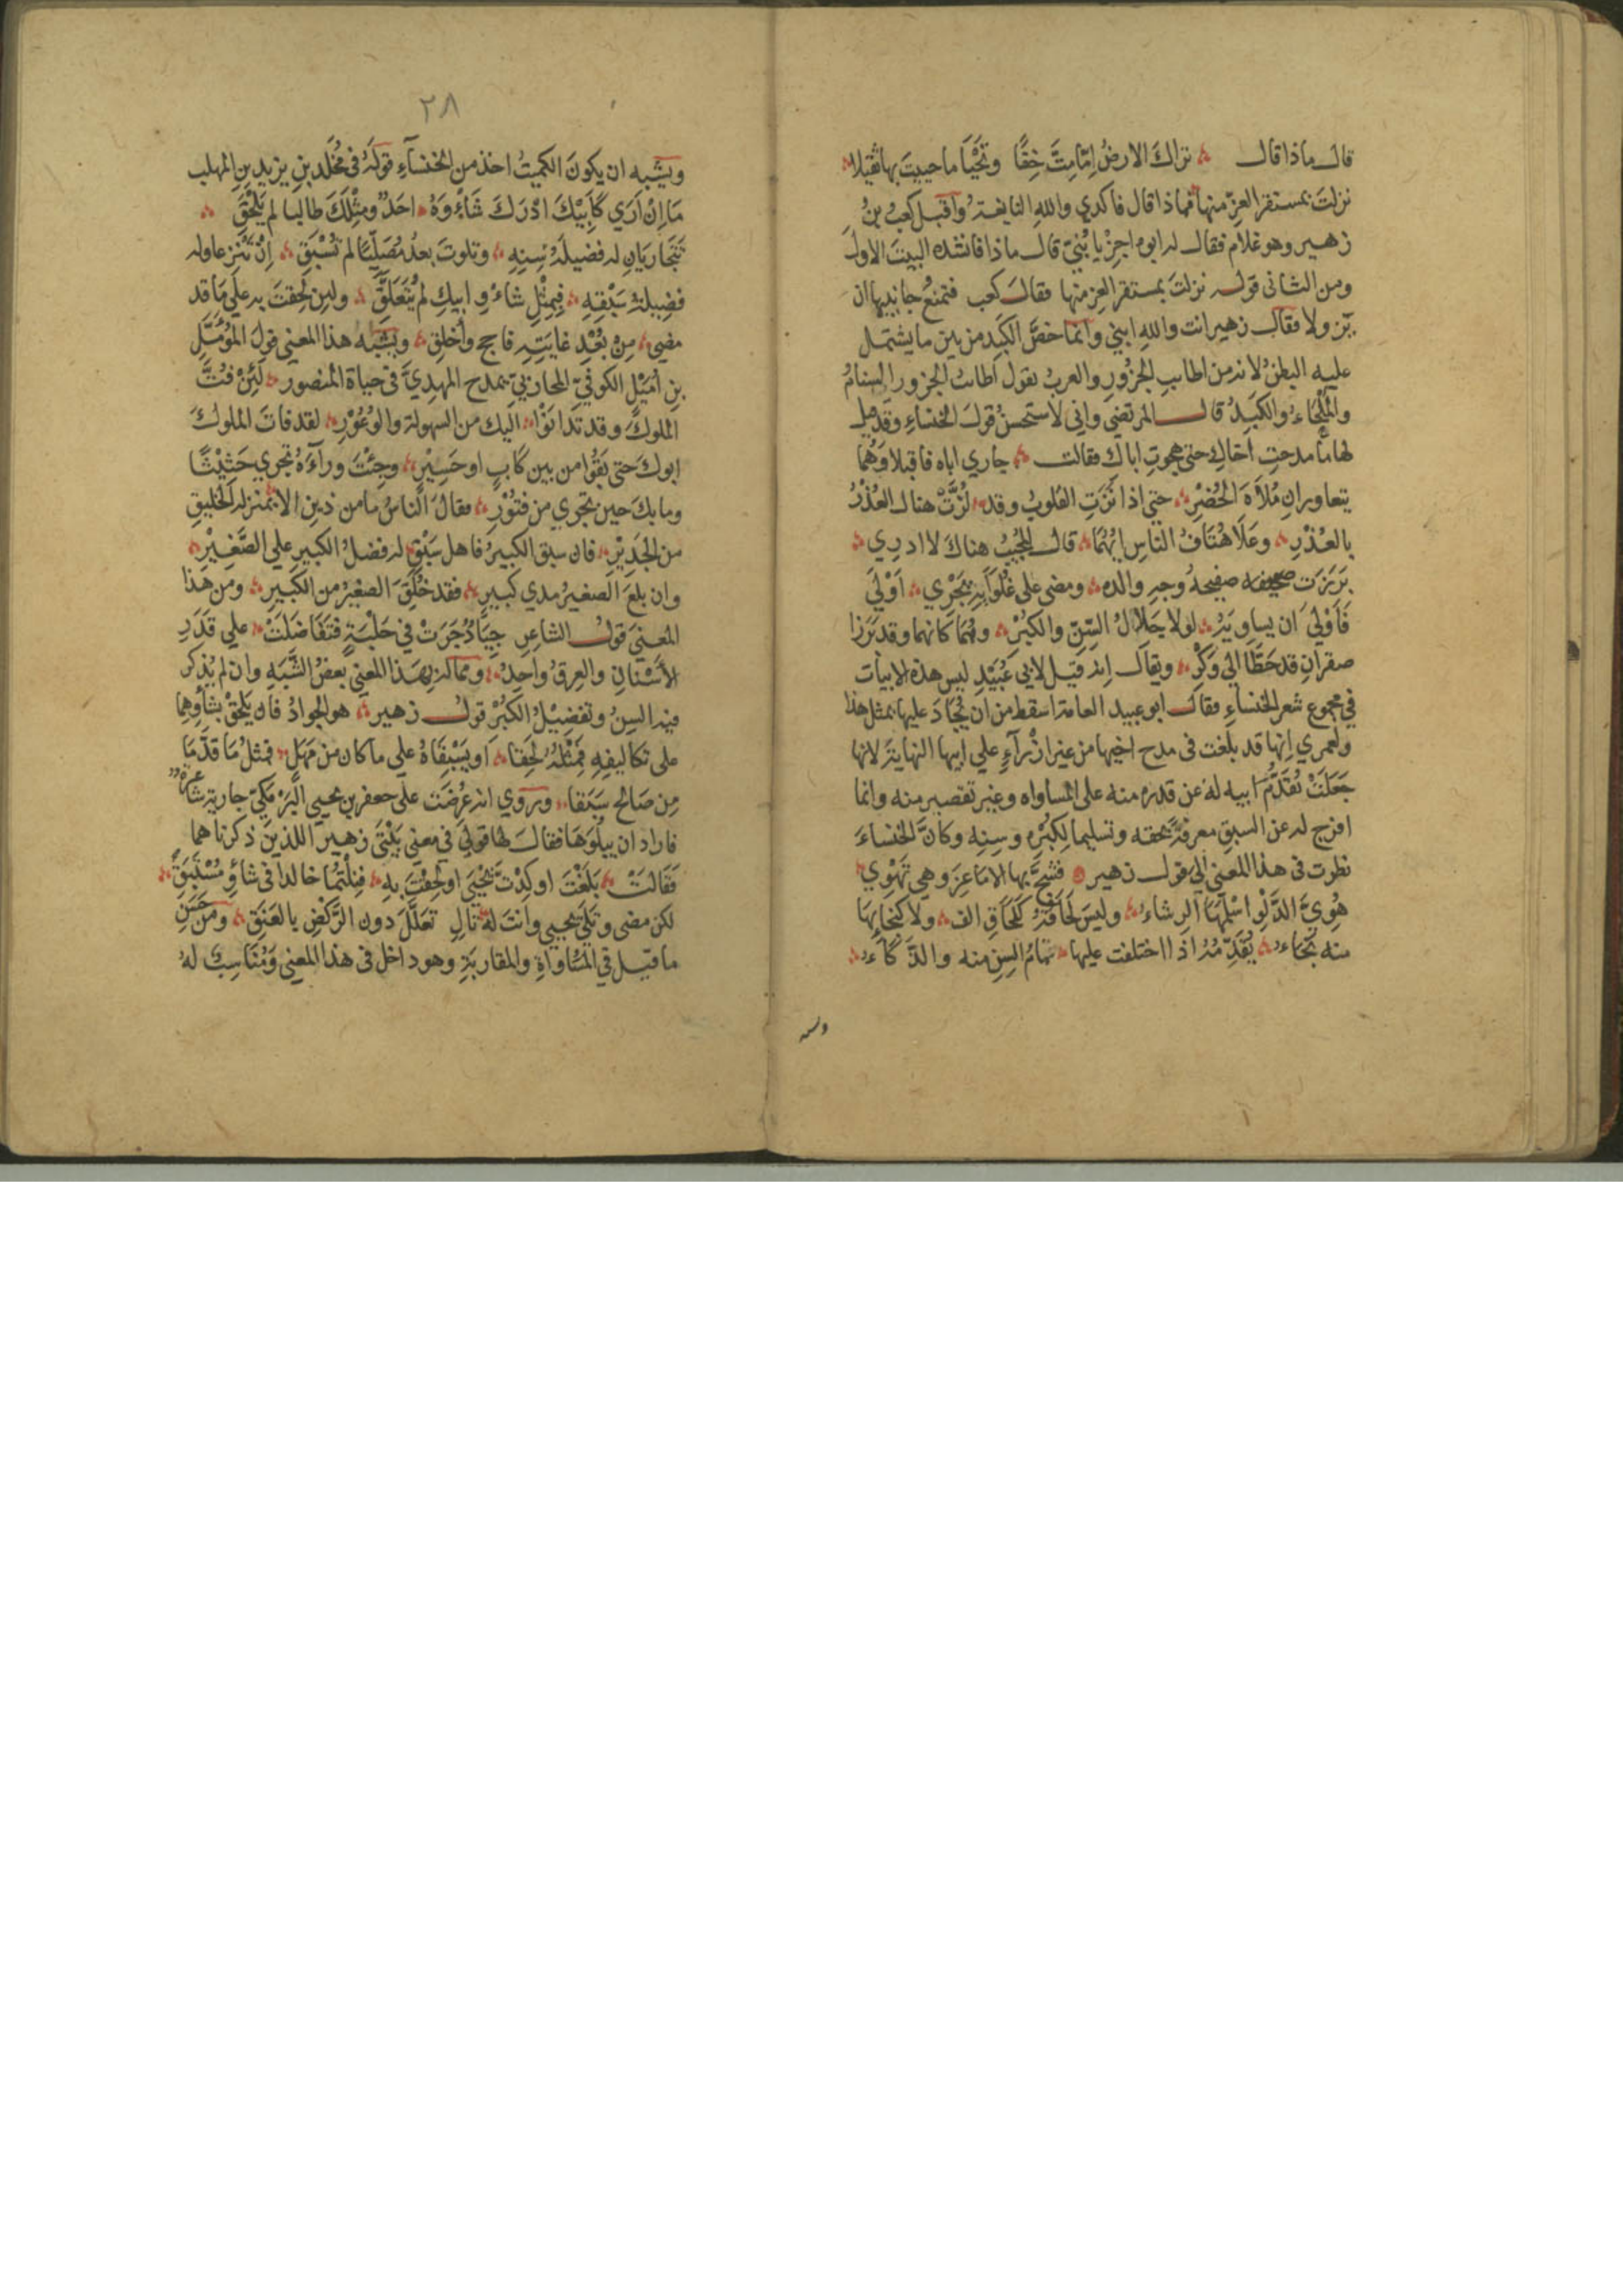 قال ماذا قال ؞ تراك الارضُ اِمّا مِتَّ خِفًّا وتَحْيَا ما حييتَ بها ثقيلا ؞
نزلتَ بمستقر العِزّ منها فماذا قال فاكدي واللهِ النابغةُ واقبل كعبُ بنُ
زهير وهو غلام فقال له ابوه اجِزْ يا بُنيّ قال ماذا فانشده البيتَ الاولَ
ومن الثاني قوله نزلتَ بمستقر العز منها فقالَ كعب فتمنعُ جانبيها ان
يزولا فقال زهير انت واللهِ ابني وانما خصَّ الكَبِد من بين ما يشتمل
عليه البطنُ لانه من اطايبِ الجَزُورِ والعربُ تقول اطائبُ الجزور السنامُ
والمَلْحَاءُ والكَبِدُ قال المرتضي واني لاستحسنُ قولَ الخنساءِ وقد قيل
لها ما مدحتِ اخاكِ حتى هجوتِ اباك فقالت ؞ جاري اباه فاقبلا وهُما
يتعاورانِ مُلاَةَ الحُضْرِ ؞ حتي اذا نَزَتِ القلوبُ وقد ؞ لُزَّتْ هناك العُذْرُ
بالعُذْرِ ؞ وعَلَا هُتَافُ الناسِ ايّهُمَا ؞ قال المجيبُ هناكَ لا ادري ؞
بَرَزَت صحيفه صفيحةُ وجهِ والده ؞ ومضي على غُلَوَائِهِ يَجْرِي ؞ اَوْلَي
فَاَوْلَي اَن يساويَهُ ؞ لولا جَلَالُ السِّنّ والكبْرِ ؞ وهُمَا كانهما وقد بَرَزا
صقرانِ قد حَطَّا الي وَكْرِ ؞ ويقال اِنه قيل لابي عُبَيْدٍ ليس هذه الابيات
في مجموع شعر الخنساءِ فقال ابو عبيد العامة اسقط من ان يُجَادَ عليها بمثل هذا
ولعمري اِنها قد بلغت في مدح اخيها من غير ازْرآءٍ علي ابيها النهاية لانها
جَعَلَتْ تَقَدُّمَ ابيه له عن قدرة منه على المساواه وغير تقصير منه وانما
افرج له عن السبق معرفةً بحقه وتسليما لكِبْرِه وسِنِه وكانَّ الخنساءَ
نظرت في هذا المعني الي قول زهير ۞ فشجَّ بها الاماعِزَ وهي تَهْوِي ؞
هُوِيَّ الدَّلْوِ اسْلَمَهَا الرِشاءُ ؞ وليسَ لَحَاقُهُ كلَحَاقِ الف ؞ ولا كنجائِها
منه نَجَاءُ ؞ يُقَدِّمُهُ اذا اختلفت عليها ؞ تمامُ السِنِ منه والذَّكَاءُ ؞
٢٨
ويشبِه ان يكونَ الكميتُ اخذ من الخنسآءِ قولَهُ في مُخَلَّد بنِ يزيد بنِ المهلب
مَا اِنْ اَرَي كَاَبِيْكَ ادْرَكَ شَاْوَهُ ؞ احَدٌ ومِثْلِكَ طالبا لم يَلْحَقِ ؞
تَتَجَارَيَانِ له فضيلةُ سِنِه ؞ وتلوتَ بعدُ مُصَلِّيًا لم تُسْبَقِ ؞ اِنْ تَنْزِعا وله
فضيلةُ سَبْقِهِ ؞ فبِمِثْلِ شاءْوِ ابيك لم يُتَعَلَّقِ ؞ ولئِن لَحِقتَ به علي مَا قد
مضي ؞ مِنْ بُعْدِ غايَتِهِ فاحج واَخلِقِ ؞ ويشْبِهُ هذا المعني قولَ المُؤَمَّلِ
بنِ اُمَيْلٍ الكوفيّ المحاربيّ يمدح المهدِيَّ في حياة المنصور ؞ لَئِنْ فُتَّ
الملوكَ وقد تَدانَوْا ؞ اليك من السهولة والوُعُوْرِ ؞ لقد فاتَ الملوكَ
ابوكَ حتى بَقُوا من بين كابٍ او حَسِيْرٍ ؞ وجِئْتَ ورآءَهُ تجري حَثِيْثًا
وما بكَ حين تجري من فتوْرِ ؞ فقالَ الناسُ ما من ذين الا بمنزله الخليقِ
من الجَدِيْرِ ؞ فان سبق الكبيرُ فاهل سَبْقٍ له فضلُ الكبيرِ علي الصَّغِيْرِ ؞
وان بلغَ الصغيرُ مدي كبيرِ ؞ فقد خُلِقَ الصغيرُ من الكَبيرِ ؞ ومن هذا
المعني قول الشاعر جِيَادٌ جَرَتْ في حَلْبَةٍ فتَفَاضَلَتْ ؞ علي قَدَرِ
الاَسْنانِ والعِرقُ واحدُ ؞ ومما له بهذا المعني بعضُ الشَّبَهِ وان لم يُذكر
فيه السِنُ وتفضِيْلُ الكِبْرِ قولُ زهير ؞ هو الجوادُ فان يَلْحَقْ بشأْوِهِما
على تكاليفِهِ فمِثْلُهُ لَحِقَا ؞ اَو يَسْبِقَاهُ علي ما كان من مَهَلٍ ؞ فمثلُ مَا قدَّمَا
مِن صَالحٍ سَبَقا ؞ ويروي انه عُرِضَت على جعفر بن يحيي البَرْمكيّ جارية شاعرةٌ
فاراد ان يبلُوَها فقالَ لها قولي في معني بَيْتَى زهير اللذينِ ذكرناهما
فقالَتْ ؞ بَلَغْتَ او كِدْتَ يَحْيَي او لَحِقْتَ بِهِ ؞ فنِلْتُمَا خالدا في شاْوِ مُسْتَبِقِ ؞
لكن مضى وتَلَى يحيي وانتَ له تالٍ تعَلَّلَ دون الرَّكْضِ بالعَنَقِ ؞ ومن حَسَنِ
ما قيل في المُسَاواةِ والمقاربَةِ وهو داخل في هذا المعني ومُنَاسِبٌ لهُ